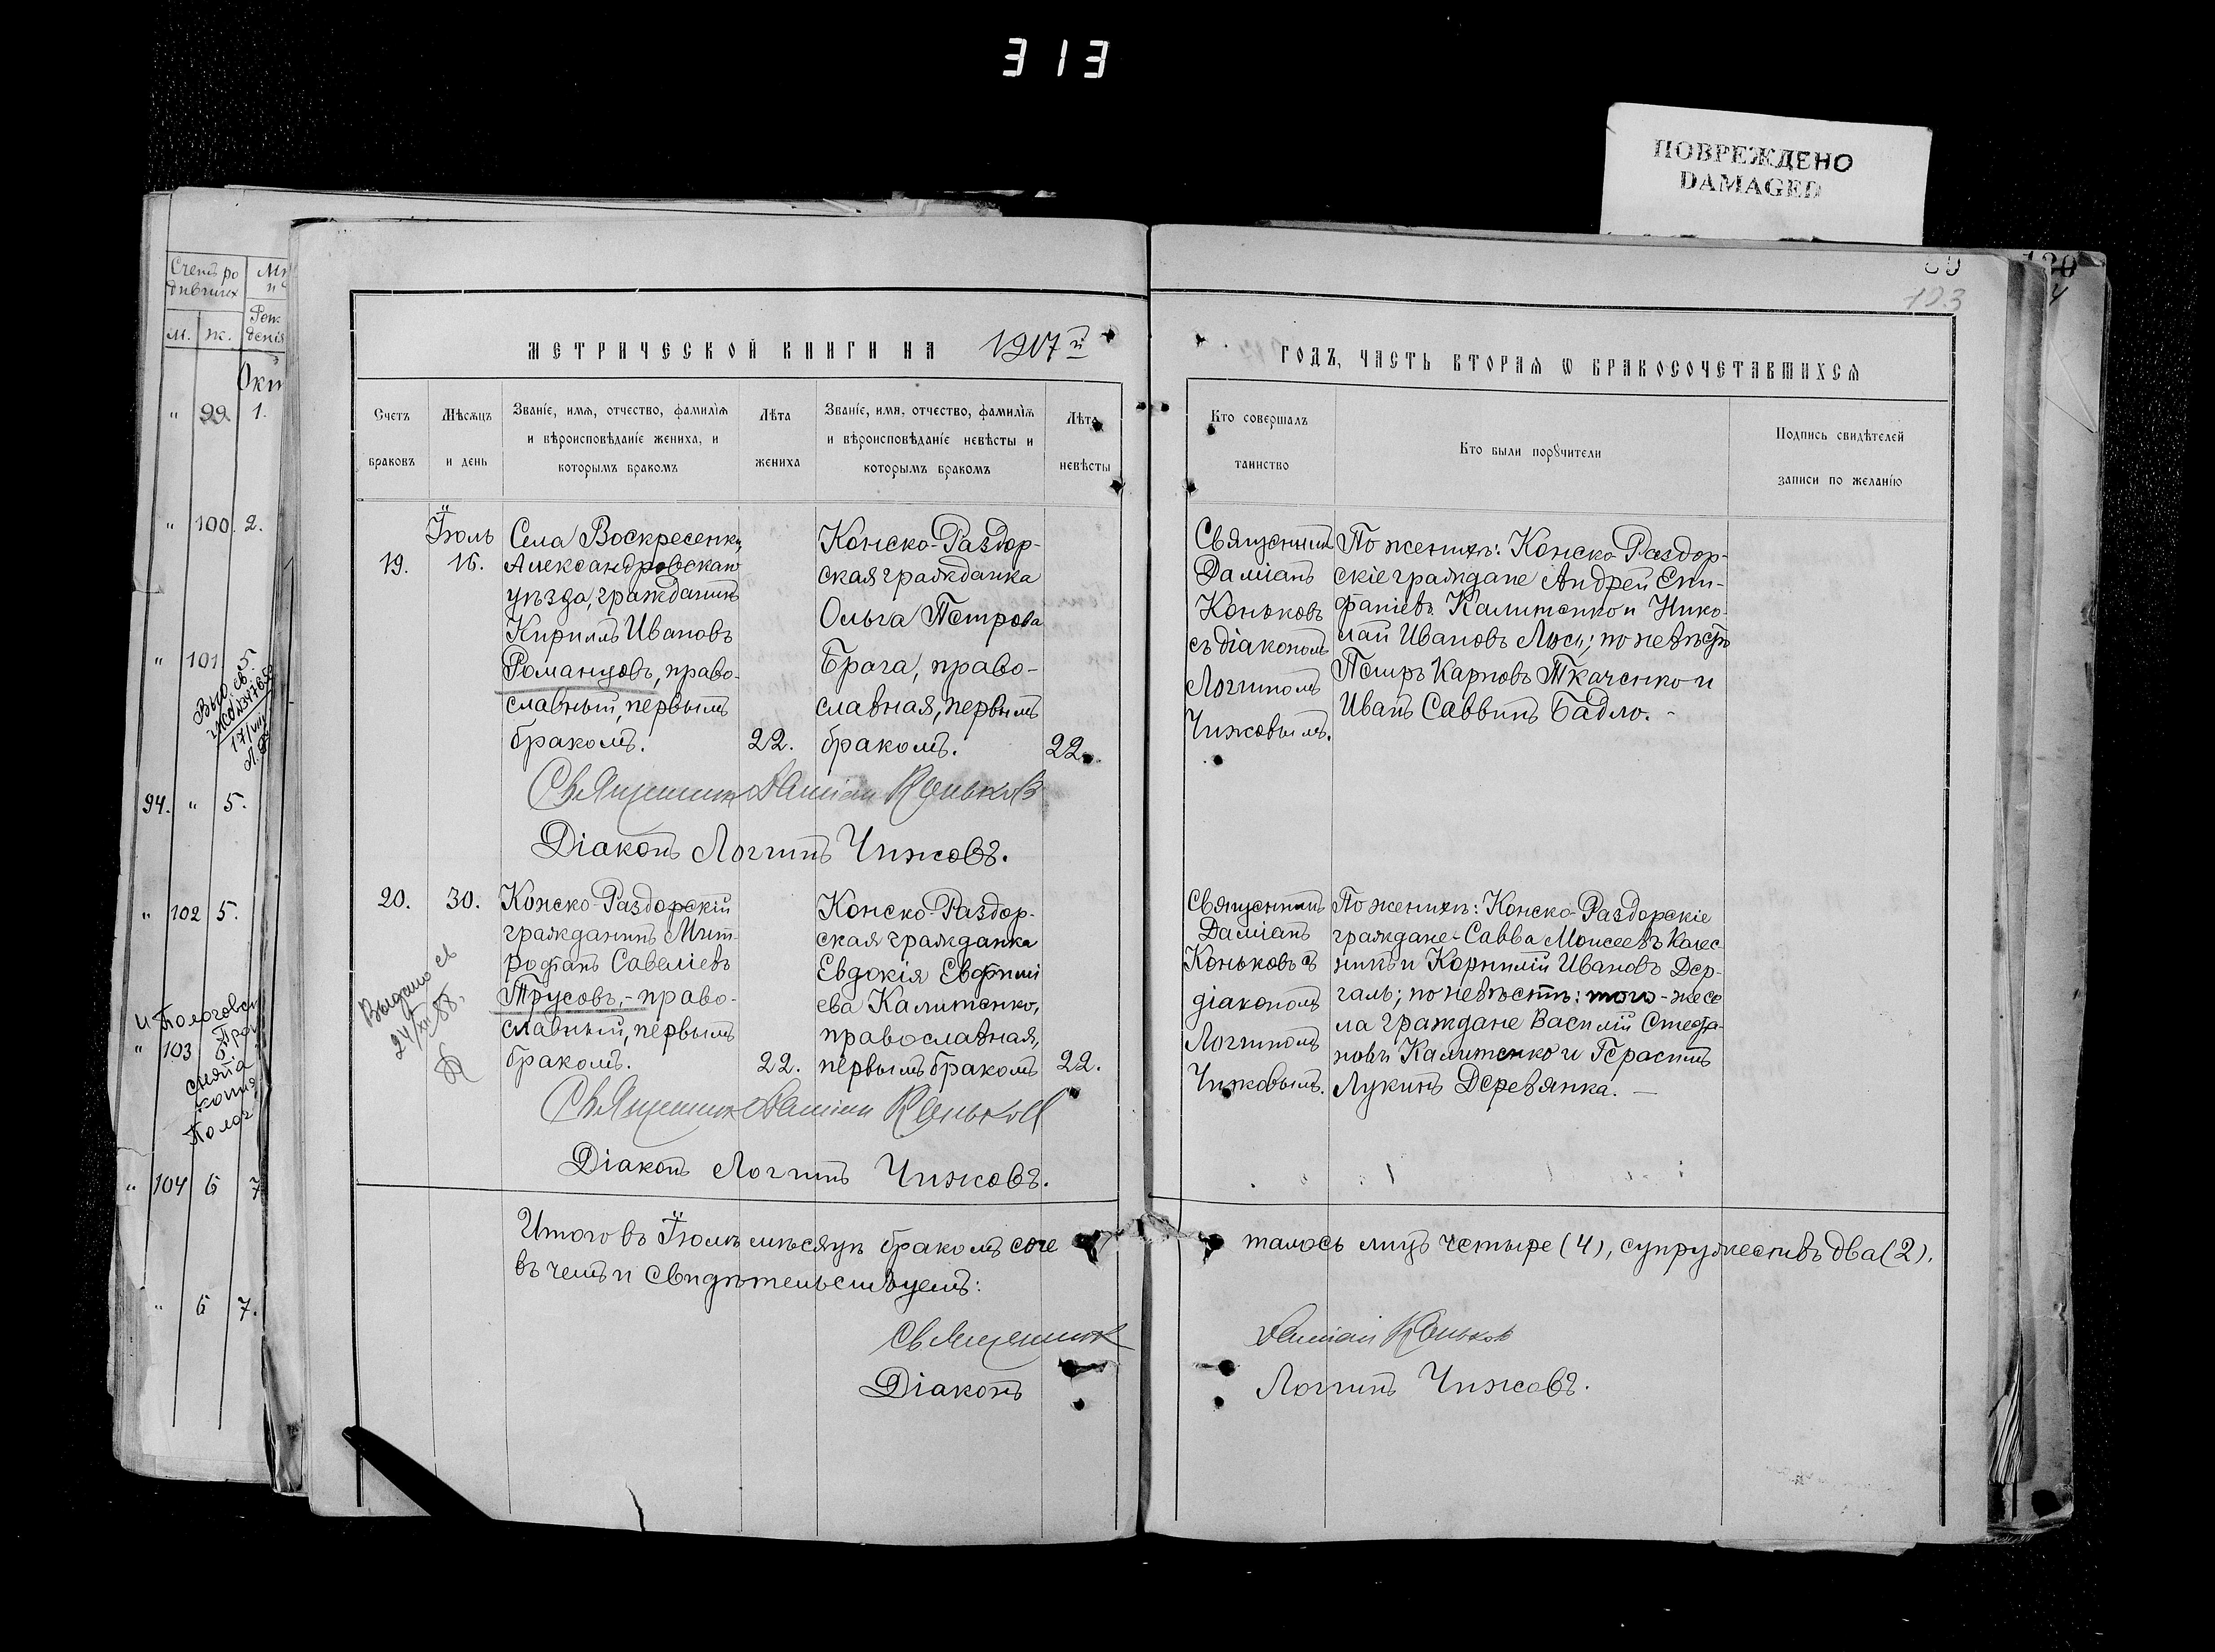 313
ПОВРЕЖДЕНО
DAMAGED
123
Счетъ ро
дившихъ
М.
Ж.
Рож
денія
" 99. 1.
" 100. 2.
" 101
94. " 5.
" 102 5.
" 103 6
" 104 6 7
" 6 7.
МЕТРИЧЕСКОЙ КНИГИ НА 1917й
ГОДЪ, ЧАСТЬ ВТОРАЯ Ѡ БРАКОСОЧЕТАВШИХСЯ
Счетъ
браковъ
Мѣсяцъ
и день
Званіе, имя, отчество, фамилія
и вѣроисповѣданіе жениха, и
которымъ бракомъ
Лѣта
жениха
Званіе, имя, отчество, фамилія
и вѣроисповѣданіе невѣсты и
которымъ бракомъ
Лѣта
невѣсты
Кто совершалъ
таинство
Кто были порꙋчители
Подпись свидѣтелей
записи по желанію
Іюль
19.
16.
Села Воскресенки,
Александровскаго
уѣзда, гражданинъ
Кириллъ Ивановъ
Романцовъ, право-
славный, первымъ
бракомъ.
22.
Конско-Раздор-
ская гражданка
Ольга Петрова
Брага, право-
славная, первымъ
бракомъ.
22.
Священникъ
Даміанъ
Коньковъ
съ діакономъ
Логгиномъ
Чижовымъ.
По женихѣ: Конско-Раздор-
скіе граждане Андрей Епи-
фаніевъ Калитенко и Нико-
лай Ивановъ Люсь; по невѣстѣ
Петръ Карповъ Ткаченко и
Иванъ Саввинъ Бадло.-
Священникъ Даміан Коньков
Діаконъ Логгинъ Чижовъ.
20.
30.
Выдано св
24/XII 88.
Конско-Раздорскій
гражданинъ Мит-
рофанъ Савеліевъ
Трусовъ,- право-
славный, первымъ
бракомъ.
22.
Конско-Раздор-
ская гражданка
Евдокія Евфими
ева Калитенко,
православная,
первымъ бракомъ
22.
Священникъ
Даміанъ
Коньковъ съ
діакономъ
Логгиномъ
Чижовымъ.
По женихѣ: Конско-Раздорскіе
граждане- Савва Моисеевъ Колес-
никъ и Корнилій Ивановъ Дер-
галь; по невѣстѣ: того-же се
ла граждане Василій Стефа-
новъ Калитенко и Герасимъ
Лукинъ Деревянка. —
Священник Даміан Коньков
Діаконъ Логгинъ Чижовъ.
Итого въ Іюлѣ мѣсяцѣ бракомъ соче
талось лицъ четыре (4), супружествъ два (2).
въ чемъ и свидѣтельствуемъ:
Священник Даміан Коньков
Діаконъ Логгинъ Чижовъ.